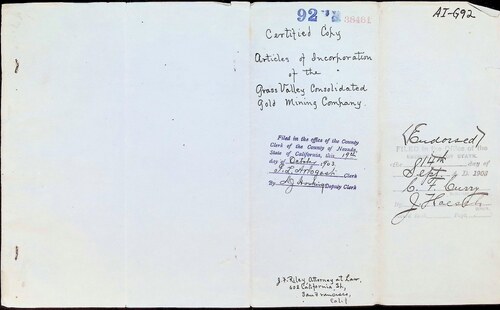 92
38401
AI-G92
Certified Copy
Articles of Incorporation
of the
Grass Valley Consolidated
Gold Mining Company.
Filed in the office of the County
Clerk of the County of Nevada,
State of California, this 19th
day of October 1903
Clerk
By Deputy Clerk
J. F. Riley, Attorney at Law,
California St,
San Francisco,
Cal.
(Endorsed)
FILED in the office of the
14th day of
Sept 1903
C. F. Curry
J. Hoesch